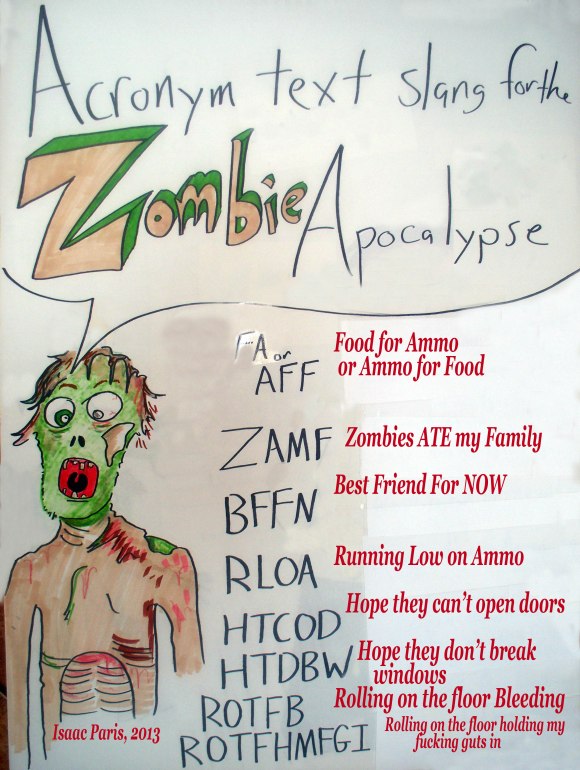 Acronym text slang for the
Zombie
Apocalypse
or
AFF
Food for Ammo
or Ammo for Food
ZAMF
Zombies ATE my Family
BFFN
Best Friend For NOW
RLOA
Running Low on Ammo
HTCOD
Hope they can't open doors
HTDBW
Hope they don't break
windows
ROTFB
Rolling on the floor Bleeding
ROTFHMFGI
Rolling on the floor holding my
fucking guts in
Isaac Paris, 2013